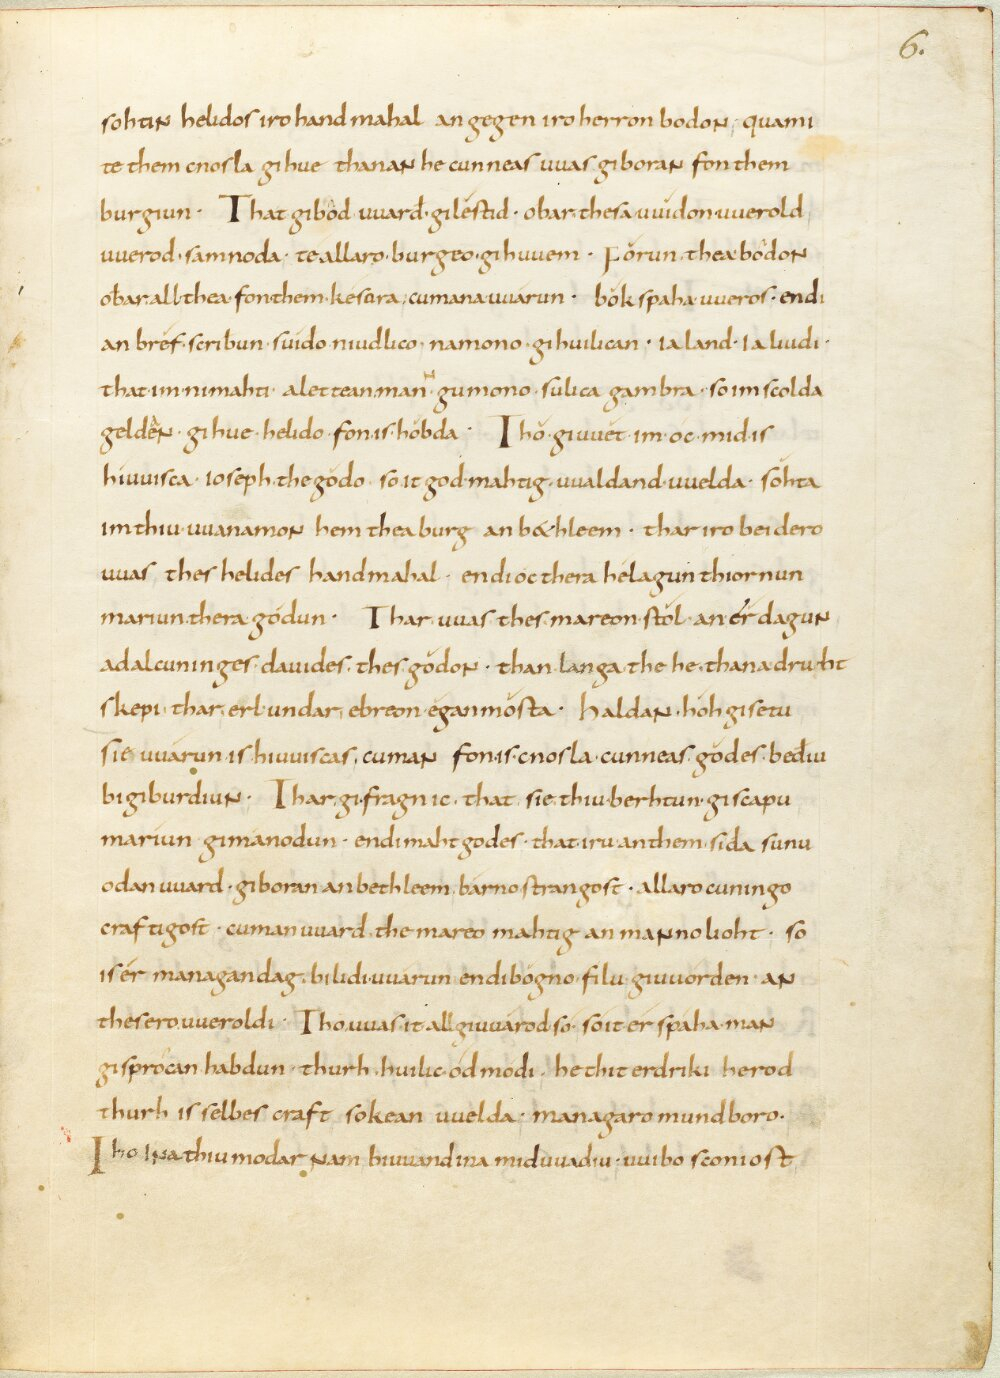 6.
sohtun helidos iro hand mahal an gegen iro herron bodon, quami
te them cnosla gihue thanan he cunneas uuas giboran fon them
burgiun· That gibod uuarđ·gilestid· obar·thesa uuidon·uuerold
uuerod·samnoda· te allaro·burgeo·gihuuem· Forun thea bodon
oƀar·all·thea·fon them·kesura, cumana uuarun· bok spaha uueros·endi
an bref·scriƀun·suido niudlico, namono·gihuilican· ia land·ia liudi·
that im ni mahti alettean man gumono sulica gambra· so im scolda
gelden· gihue helido fon is hoƀda· Tho giuuet im oc mid is
hiuuisca· ioseph the godo so it god mahtig uualdand uuelda· sohta
im thiu uuanamon hem thea burg an b&hleem· thar iro beidero
uuas thes helides handmahal· endi oc thera helagun thiornun
mariun thera godun· Thar uuas thes mareon stol an er dagun
adalcuninges dauides thes godon· than langa the he thana druht
skepi thar erl undar ebreon egan mosta· haldan hoh gisetu
sie uuarun is hiuuiscas, cuman fon is cnosla cunneas godes beđiu
bi giburdiun· Thar gifragn ic that sie thiu berhtun giscapu
mariun gimanodun· endi maht godes· that iru an them sida sunu
odan uuard giboran an bethleem barno strangost· allaro cuningo
craftigost· cuman uuard the mareo mahtig an manno lioht· so
is er managan dag bilidi uuarun endi bogno filu giuuorden an
thesero uueroldi· Tho uuas it all giuuarod so so it er spaha man
gisprocan habdun· thurh huilic odmodi he thit erdriki herod
thurh is selbes craft sokean uuelda· managaro mundboro·
Tho ina thiu modar nam biuuand ina mid uuadiu uuibo sconiost